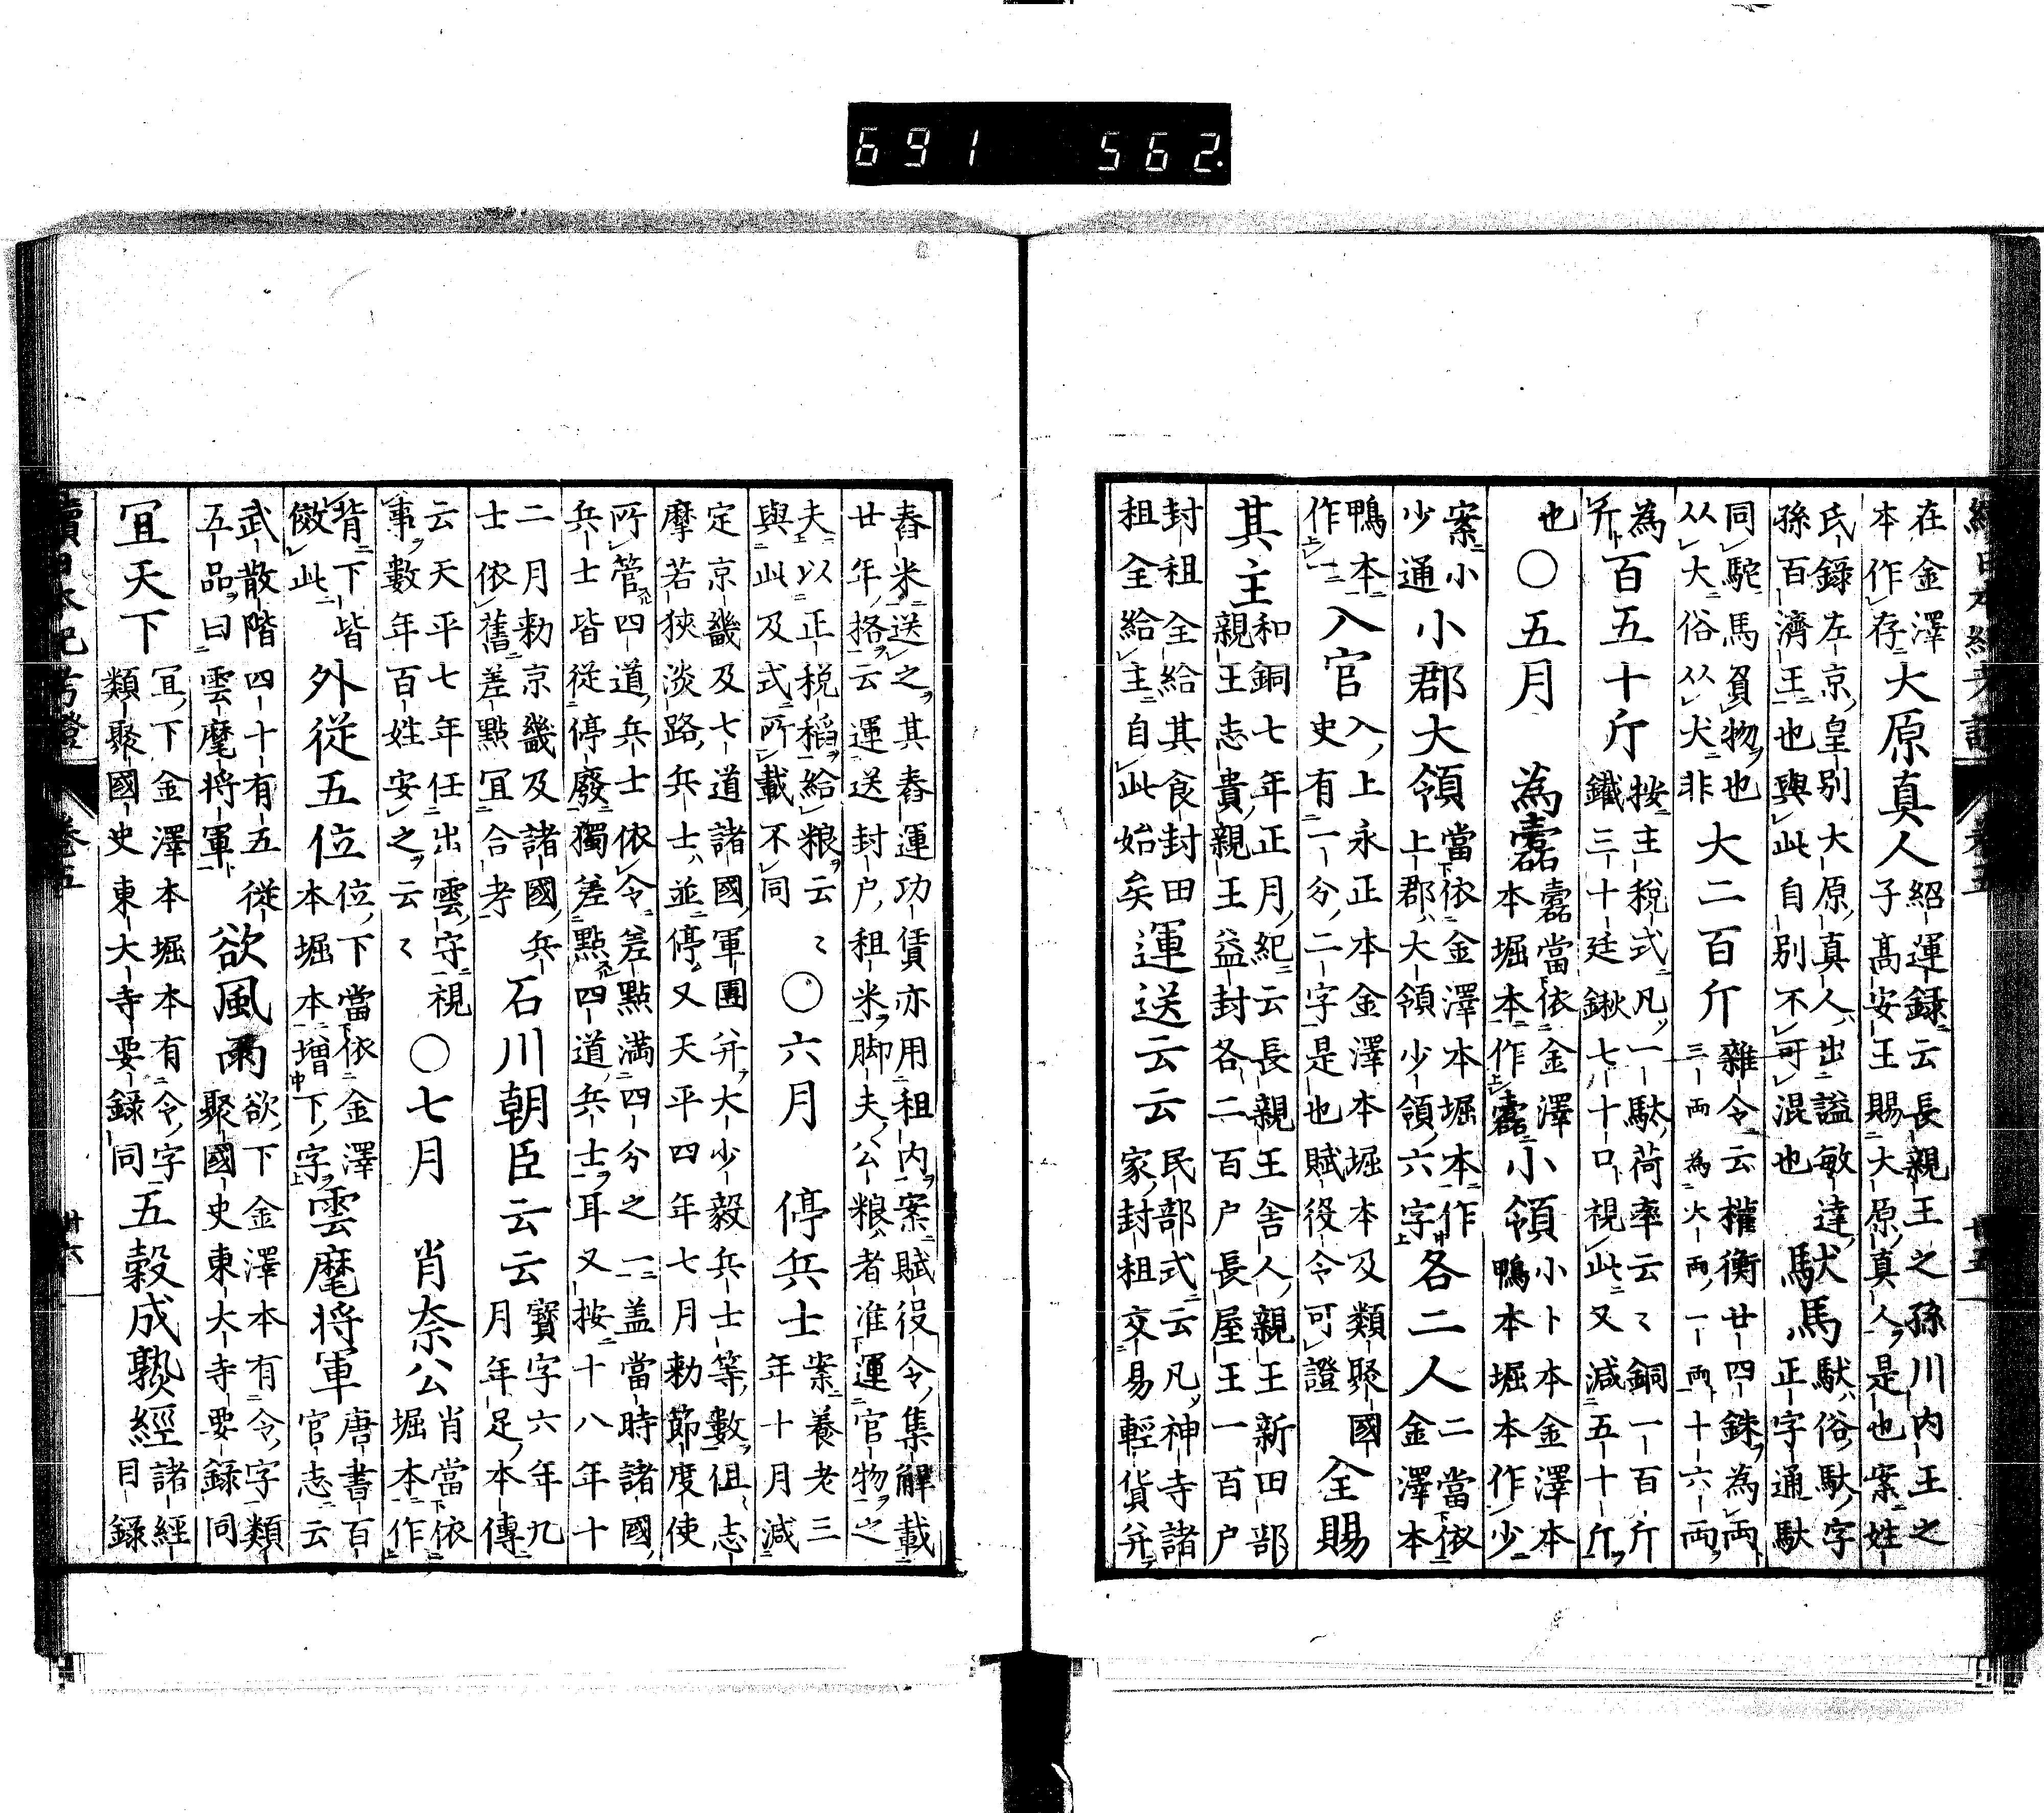 691 562.
在金澤
本作存大原真人紹運録云長親王之孫川内王之
子高安王賜大原真人是也案姓
氏録左京皇別大原真人出謚敏達
孫百濟王也與此自別不可混也馱馬馱俗馱字
正字通馱
同駝馬負物也
从大俗从犬非大二百斤雜令云權衡廿四銖為両
三両為大両一両十六両
為
斤百五十斤按主税式凡一馱荷率云〻銅一百斤
鐵三十廷鍬七十口視此又減五十斤
也○五月 為蠹蠹當依金澤
本堀本作蠹小領小卜本金澤本
鴨本堀本作少
案小
少通小郡大領當依金澤本堀本作
上郡大領少領六字各二人二當依
金澤本
鴨本
作一入官入上永正本金澤本堀本及類聚國
史有一分二字是也賦役令可證全賜
其主和銅七年正月紀云長親王舎人親王新田部
親王志貴親王益封各二百户長屋王一百户
封租全給其食封田
租全給主自此始矣運送云云民部式云凡神寺諸
家封租交易輕貨并
舂米送之其舂運功賃亦用租内案賦役令集解載
廿年格云運送封户租米脚夫公粮者准運官物之
夫以正税稻給粮云〻
與此及式所載不同○六月 停兵士案養老三
年十月減
定京畿及七道諸國軍團并大少毅兵士等數但志
摩若狹淡路兵士並停又天平四年七月勅節度使
所管四道兵士依令差點満四分之一盖當時諸國
兵士皆従停廢獨差點四道兵士耳又按十八年十
二月勅京畿及諸國兵
士依舊差點宜合考石川朝臣云云寳字六年九
月年足本傳
云天平七年任出雲守視
事數年百姓安之云〻○七月 肖奈公肖當依
堀本作
背下皆
儆此外従五位位下當依金澤
本堀本増下字雲麾将軍唐書百
官志云
武散階四十有五従
五品曰雲麾将軍欲風雨欲下金澤本有令字類
聚國史東大寺要録同
宜天下宜下金澤本堀本有令字
類聚國史東大寺要録同五穀成熟經諸經
目録
續日本紀考證 卷五 廿六